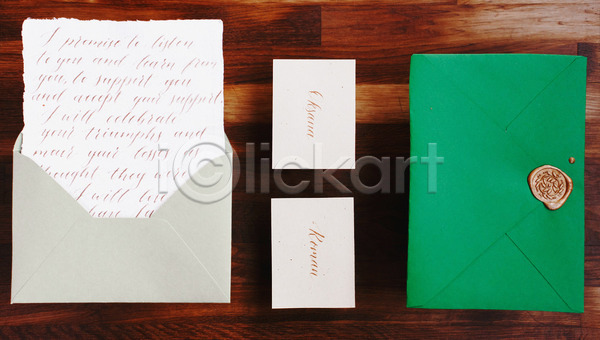 I promise to listen
to you and learn from
you, to support you
and accept your support.
I will celebrate
your triumphs and
mour your losses as
thought they were
I will love
have
Oksana
Roman
iclickart